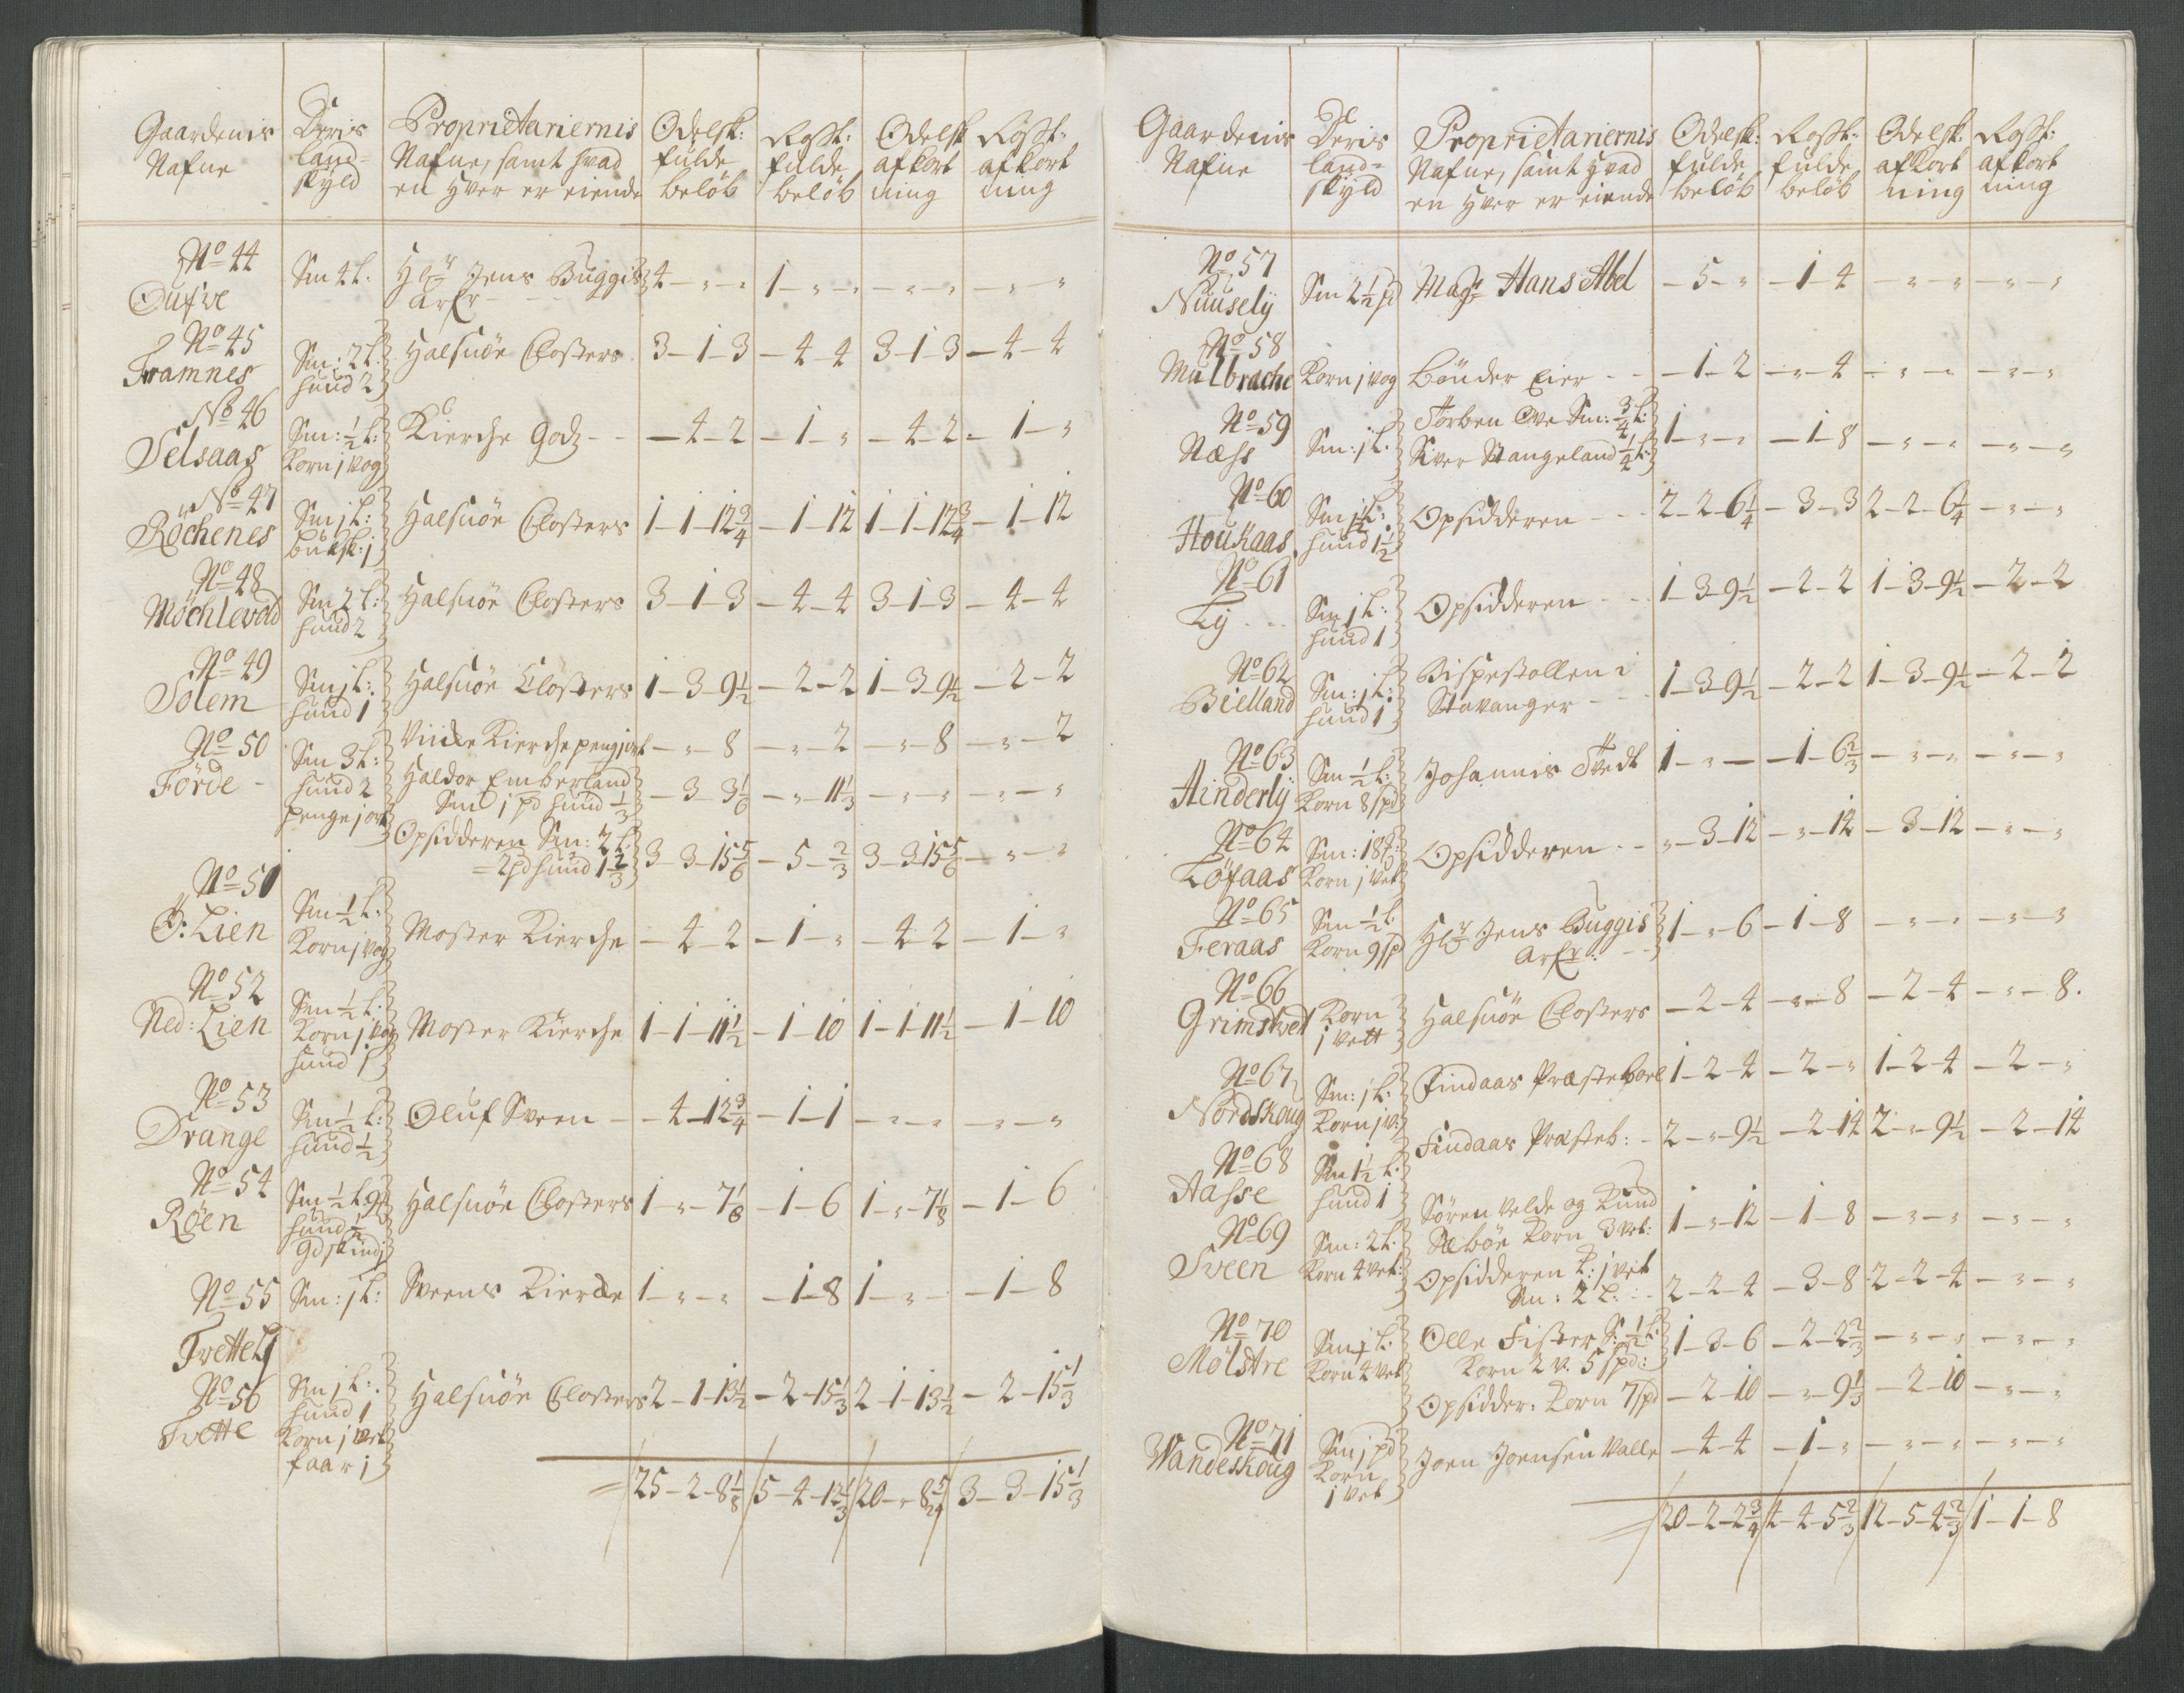 Gaardenis Nafne | Deris land=skyld | Proprietariernis Nafne, samt hvad en hver er eiende | Odelsk: fulde beløb | Rossk: fulde beløb | Odelsk afkortning | Rossk: afkortning
No 44 Oufve | Sm 4 L: | Hr Jens Buggis Arf: | 4 - " - " | 1 - " - " | - " - " | - " - "
No 45 Framnes | Sm: 2 L: hund 2 | Halsnöe Closters | 3 - 1 - 3 | - 4 - 4 | 3 - 1 - 3 | - 4 - 4
No 46 Selsaas | Sm: 1/2 L: Korn j vog | Kierche Godz - - | - 4 - 2 | - 1 - " | - 4 - 2 | - 1 - "
No 47 Röchenes | Sm j L: buksk: j | Halsnöe Closters | 1 - 1 - 12 3/4 | - 1 - 12 | 1 - 1 - 12 3/4 | - 1 - 12
No 48 Möchlevold | Sm 2 L: hund 2 | Halsnöe Closters | 3 - 1 - 3 | - 4 - 4 | 3 - 1 - 3 | - 4 - 4
No 49 Solem | Sm j L: hund 1 | Halsnöe Closters | 1 - 3 - 9 1/2 | - 2 - 2 | 1 - 3 - 9 1/2 | - 2 - 2
No 50 Förde - | Sm 3 L: hund 2 penge j ort | Viiche Kierche penge j ort | - " - 8 | - " - 2 | - " - 8 | - " - 2
Haldor Emberland Sm j pd hund 1/3 | - 3 - 3 1/6 | - " - 11 1/3 | - " - " | - " - "
Opsidderen Sm: 2 L: =2 pd hund 1 2/3 | 3 - 3 - 15 5/6 | - 5 - 2/3 | 3 - 3 - 15 5/6 | - " - "
No 51 Ö: Lien | Sm 1/2 L: Korn j vog | Moster Kierche | - 4 - 2 | - 1 - " | - 4 - 2 | - 1 - "
No 52 Ned: Lien | Sm 1/2 L: Korn j vog hund 1 | Moster Kierche | 1 - 1 - 11 1/2 | - 1 - 10 | 1 - 1 - 11 1/2 | - 1 - 10
No 53 Drange | Sm 1/2 L: hund 1/2 | Oluf Sveen - | - 4 - 12 3/4 | - 1 - 1 | - " - " | - " - "
No 54 Röen | Sm 1/2 L: hund 1/2 gd skind j | Halsnöe Closters | 1 - " - 7 1/8 | - 1 - 6 | 1 - " - 7 1/8 | - 1 - 6
No 55 Tvetteli | Sm: j L: | Sveens Kierche | 1 - " - " | - 1 - 8 | 1 - " - | - 1 - 8
No 56 Tvette | Sm j L: hund 1 Korn j vet faar j | Halsnöe Closters | 2 - 1 - 13 1/2 | - 2 - 15 1/3 | 2 - 1 - 13 1/2 | - 2 - 15 1/3
= | 25 - 2 - 8 1/8 | 5 - 4 - 12 1/3 | 20 - " - 8 5/24 | 3 - 3 - 15 1/3
Gaardenis Nafne | Deris land=skyld | Proprietariernis Nafne, samt hvad en hver er eiende | Odelsk: fulde beløb | Rossk: fulde beløb | Odelsk: afkortning | Rossk: afkortning
No 57 Nuusely | Sm 2 1/2 pd | Magr Hans Abel | - 5 - " | - 1 - 4 | - " - " | - " - "
No 58 Mulbrache | Korn j vog | Bönder Eier - - | - 1 - 2 | - " - 4 | - " - " | - " - "
No 59 Næss | Sm: j L: | Torben Ove Sm: 3/4 L: Siver Stangeland 1/4 L: | 1 - " - " | - 1 - 8 | - " - " | - " - "
No 60 Houkaas | Sm j 1/2 L: hund 1 1/2 | Opsidderen - - | 2 - 2 - 6 1/4 | - 3 - 3 | 2 - 2 - 6 1/4 | - " - "
No 61 Ly - - | Sm j L: hund 1 | Opsidderen - - | 1 - 3 - 9 1/2 | - 2 - 2 | 1 - 3 - 9 1/2 | - 2 - 2
No 62 Bielland | Sm: j L: hund 1 | Bispestollen i Stavanger - - | 1 - 3 - 9 1/2 | - 2 - 2 | 1 - 3 - 9 1/2 | - 2 - 2
No 63 Hinderly | Sm 1/2 L: Korn 8 spd | Johannis Tvedt | 1 - " - | - 1 - 6 2/3 | - " - " | - " - "
No 64 Löfaas | Sm: 18 Korn j vet | Opsidderen - - | " - 3 - 12 | - " - 14 | - 3 - 12 | - " - "
No 65 Feraas | Sm 1/2 L: Korn 9 sp | Hr Jens Buggis Arf: - - | 1 - " - 6 | - 1 - 8 | - " - " | - " - "
No 66 Grimstvedt | Korn j vett | Halsnöe Closters | - 2 - 4 | - " - 8 | - 2 - 4 | - " - 8.
No 67 Nordskoug | Sm: j L: Korn j v: | Findaas Præstebord | 1 - 2 - 4 | - 2 - " | 1 - 2 - 4 | - 2 - "
No 68 Aasse | Sm 1 1/2 L: hund 1 | Findaas Præsteb: - | 2 - " - 9 1/2 | - 2 - 14 | 2 - " - 9 1/2 | - 2 - 14
No 69 Sveen | Sm: 2 L: Korn 4 vet: | Sören Velde og Knud Sæböe Korn 3 vet: | 1 - " - 12 | - 1 - 8 | - " - " | - " - "
Opsidderen K: j vet Sm: 2 L: - - | 2 - 2 - 4 | - 3 - 8 | 2 - 2 - 4 | - " - "
No 70 Mölstre | Sm j L: Korn 4 vet | Olle Fister S: 1/2 L: Korn 2 v. 5 spd: | 1 - 3 - 6 | - 2 - 2 2/3 | - " - " | - " - "
Opsidder: Korn 7 spd | - 2 - 10 | - " - 9 1/3 | - 2 - 10 | - " - "
No 71 Wandeskoug | Sm j pd Korn 1 vet | Joen Joensen Valle | - 4 - 4 | - 1 - " | - " - " | - " - "
= | 20 - 2 - 2 3/4 | 4 - 4 - 5 2/3 | 12 - 5 - 4 2/3 | 1 - 1 - 8